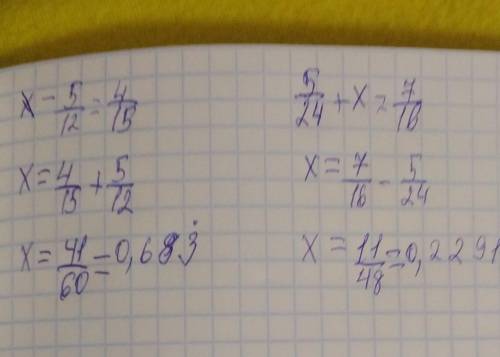 x - 5/12 = 4/15
x = 4/15 + 5/12
x = 41/60 = 0,683̇
5/24 + x = 7/16
x = 7/16 - 5/24
x = 11/48 = 0,2291